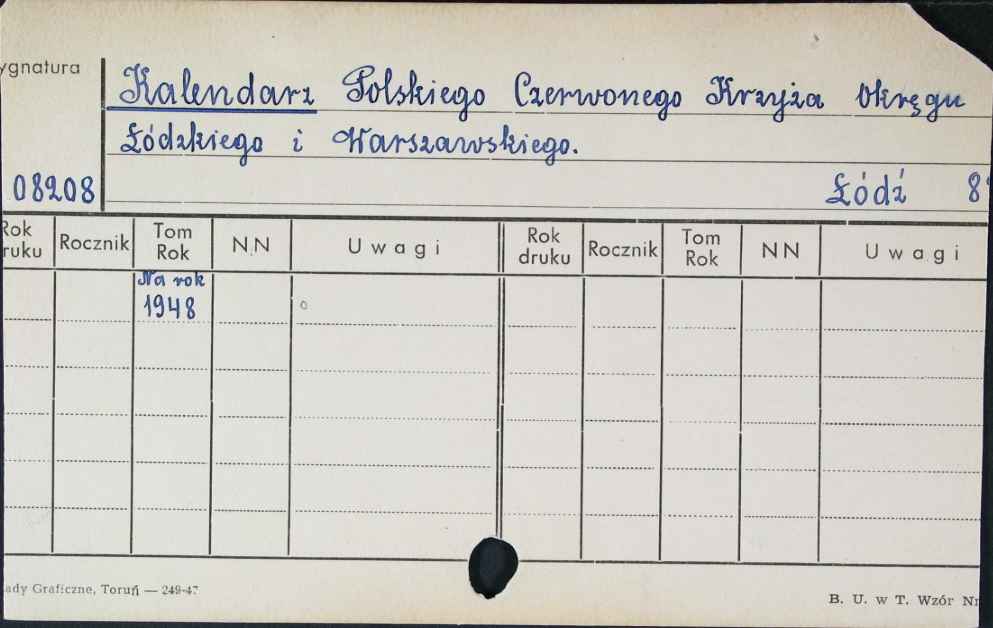 ygnatura
Kalendarz Polskiego Czerwonego Krzyża Okręgu
Łódzkiego i Warszawskiego.
08208
Łódź 8°
Rok druku Rocznik Tom Rok NN Uwagi Rok druku Rocznik Tom Rok NN Uwagi
Na rok
1948
ady Graficzne, Toruń — 249-47
B. U. w T. Wzór Nr